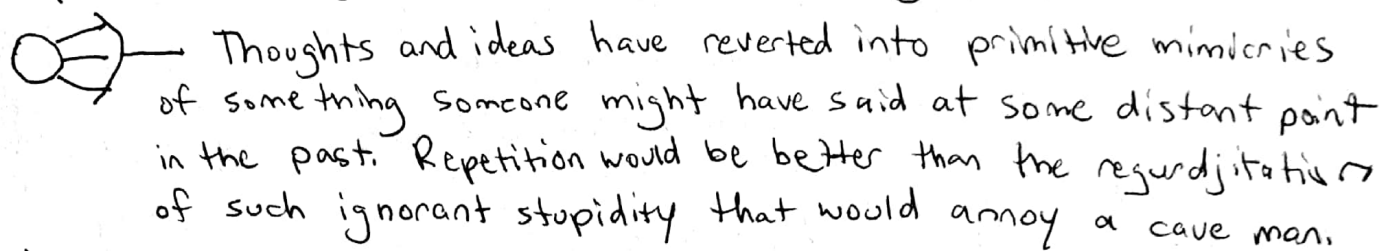 Thoughts and ideas have reverted into primitive mimicries
of something someone might have said at some distant point
in the past. Repetition would be better than the regurdjitation
of such ignorant stupidity that would annoy a cave man.